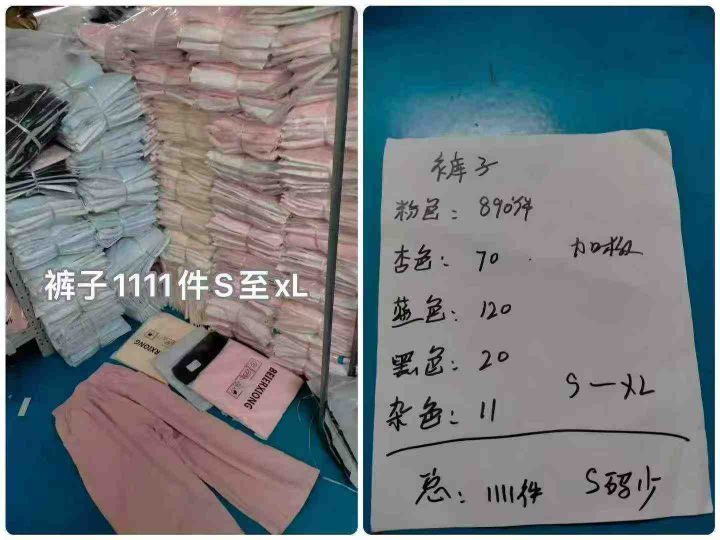 裤子1111件S至xL
BEIERXIONG
BEIERXIONG
裤子
粉色：890件
杏色：70
加极
蓝色：120
黑色：20
S一XL
杂色：11
总：1111件 S码少